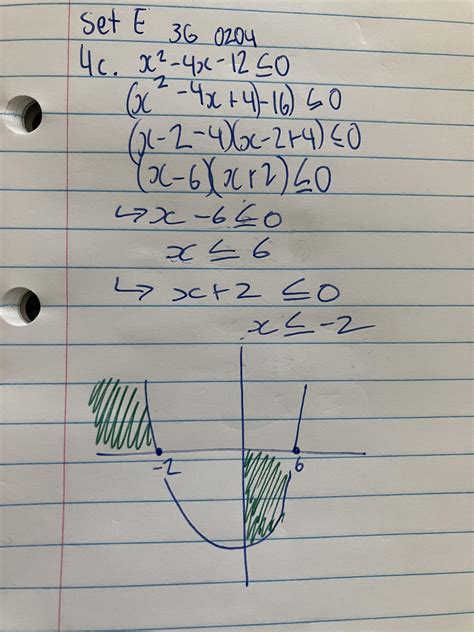 Set E 3G 0204
4c. x² -4x -12 ≤ 0
(x² -4x+4)-16) ≤ 0
(x-2-4)(x-2+4) ≤ 0
(x-6)(x+2) ≤ 0
↳ x -6 ≤ 0
x ≤ 6
↳ x+2 ≤ 0
x ≤ -2
-2 6